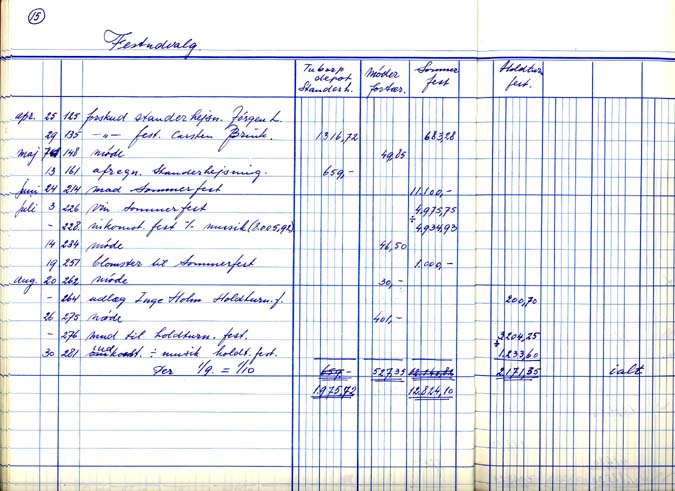 15
Festudvalg.
Tuborg depot Standerh. Møder fortær. Sommer fest Holdturn. fest.
apr. 25 125 forskud standerhejsn. Jørgen L.
29 135 -"- fest. Carsten Brink. 1316,72 683,28
maj 148 møde 49,85
13 161 afregn. Standerhejsning. 659,-
juni 24 214 mad Sommerfest 11.100,-
juli 3 226 vin Sommerfest 4.975,75
- 228 indkomst fest % musik (8.005,92) ÷ 4.934,93
14 234 møde 46,50
19 251 blomster til Sommerfest 1.000,-
aug. 20 262 møde 30,-
- 264 udlæg Inge Holm Holdturn.f. 200,70
26 275 møde 401,-
- 276 mad til holdturn. fest. 3204,25
30 281 ÷ musik holdt. fest. ÷ 1.233,60
1/9 = 1/10 659,- 527,35 2.171,35 ialt
1.975,72 12.824,10